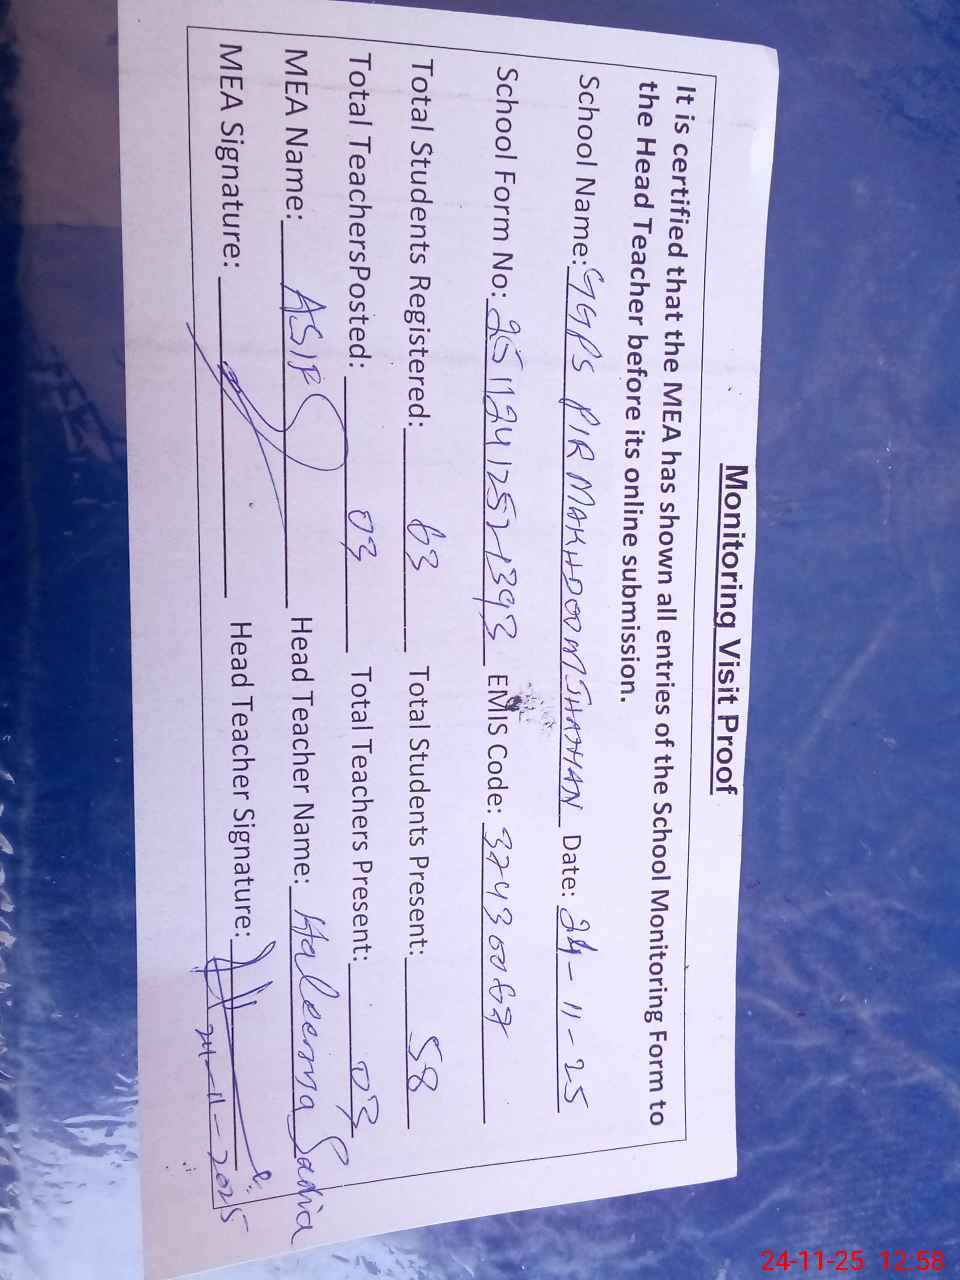 Monitoring Visit Proof
It is certified that the MEA has shown all entries of the School Monitoring Form to
the Head Teacher before its online submission.
School Name: GGPS PIR MAKHDOOM JHAHAN Date: 24-11-25
School Form No: 25112412521393 EMIS Code: 37430067
Total Students Registered: 63 Total Students Present: 58
Total TeachersPosted: 03 Total Teachers Present: 03
MEA Name: ASIF Head Teacher Name: Haleema Sadia
MEA Signature: Head Teacher Signature:
24-11-2025
24-11-25 12:58